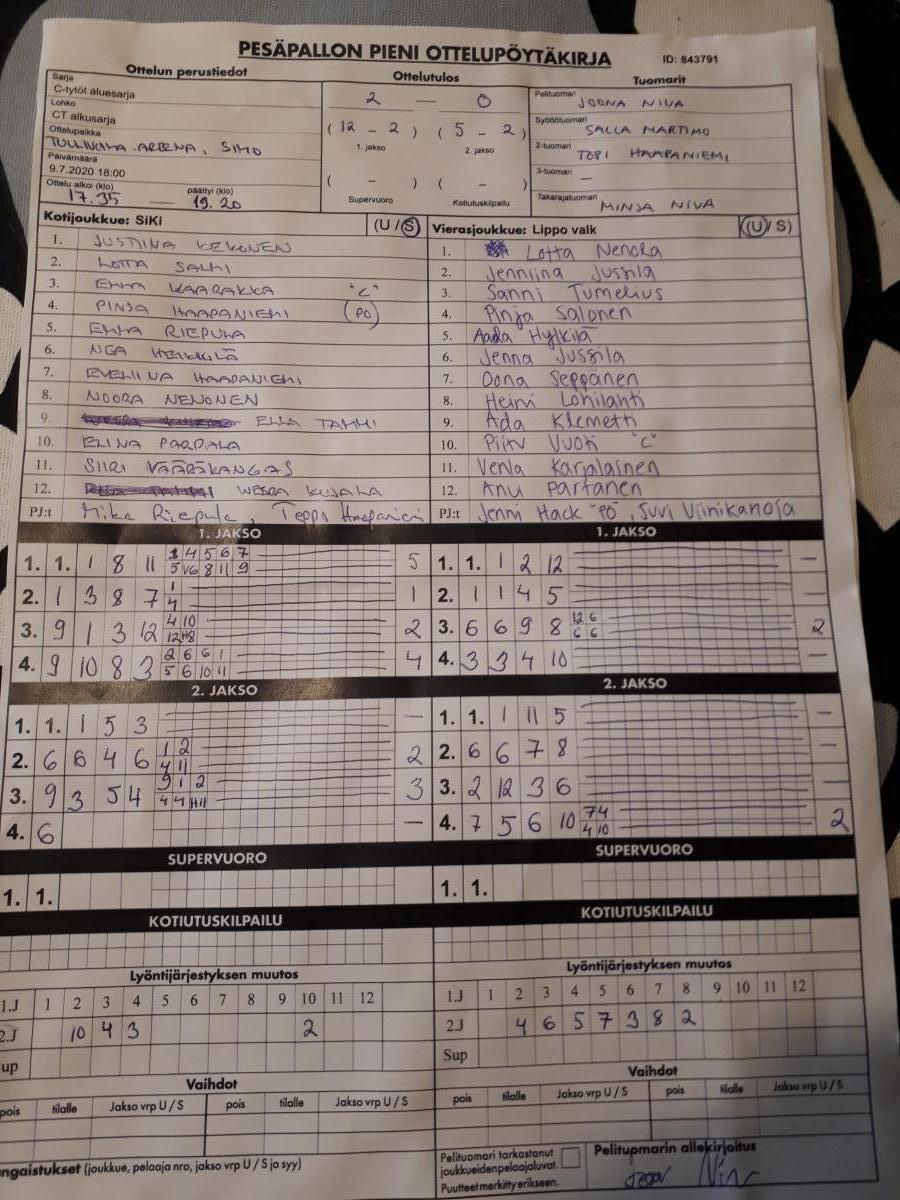 PESÄPALLON PIENI OTTELUPÖYTÄKIRJA ID: 843791
Ottelun perustiedot Ottelutulos Tuomarit
Sarja
C-tytöt aluesarja
Lohko
CT alkusarja
Ottelupaikka
AREENA, SIMO
Päivämäärä
9.7.2020 18:00
Ottelu alkoi (klo) päättyi (klo)
17.35 19.20
2 — 0
(12 - 2) (5 - 2)
1. jakso 2. jakso
( - ) ( - )
Supervuoro Kotiutuskilpailu
Pelituomari JOONA NIVA
Syöttötuomari SALLA MARTIMO
2-tuomari TOPI HAAPANIEMI
3-tuomari –
Takarajatuomari MINJA NIVA
Kotijoukkue: SiKi (U/S)
1. JUSTIINA KEKONEN
2. LOTTA SALMI
3. EMMA KAARAKKA "C"
4. PINJA HAAPANIEMI PO
5. EMMA RIEPULA
6. NEA HEIKKILÄ
7. EVELIINA HAAPANIEMI
8. NOORA NENONEN
9. ELLA TAMMI
10. ELINA PARPALA
11. SIIRI VÄÄRÄKANGAS
12. WEERA KUJALA
PJ:t Mika Riepula, Teppo Haapaniemi
Vierasjoukkue: Lippo valk (U/S)
1. Lotta Nenola
2. Jenniina Jussila
3. Sanni Tumelius
4. Pinja Salonen
5. Aada Hylkilä
6. Jenna Jussila
7. Oona Seppänen
8. Heini Lohilahti
9. Ada Klemetti
10. Piitu Vuoti "C"
11. Venla Karjalainen
12. Anu Partanen
PJ:t Jenni Hack "PO", Suvi Viinikanoja
1. JAKSO
1. 1. 1 8 11 3 4 5 6 7 5
5 6 8 11 9
2. 1 3 8 7 1 1
4
3. 9 1 3 12 4 10 2
12 H8
4. 9 10 8 3 2 6 6 1 4
5 6 10 11
1. JAKSO
1. 1. 1 2 12 –
2. 1 1 4 5 –
3. 6 6 9 8 12 6 2
6 6
4. 3 3 4 10 –
2. JAKSO
1. 1. 1 5 3 –
2. 6 6 4 6 1 2 2
4 11
3. 9 3 5 4 9 1 2 3
4 4 H11
4. 6 –
2. JAKSO
1. 1. 1 11 5 –
2. 6 6 7 8 –
3. 2 12 3 6 –
4. 7 5 6 10 7 4 2
4 10
SUPERVUORO
1. 1.
SUPERVUORO
1. 1.
KOTIUTUSKILPAILU
KOTIUTUSKILPAILU
Lyöntijärjestyksen muutos
1.J 1 2 3 4 5 6 7 8 9 10 11 12
2.J 10 4 3 2
up
Lyöntijärjestyksen muutos
1.J 1 2 3 4 5 6 7 8 9 10 11 12
2.J 4 6 5 7 3 8 2
Sup
Vaihdot
pois tilalle Jakso vrp U / S pois tilalle Jakso vrp U / S
Vaihdot
pois tilalle Jakso vrp U / S pois tilalle Jakso vrp U / S
ngaistukset (joukkue, pelaaja nro, jakso vrp U / S ja syy)
Pelituomari tarkastanut
joukkueidenpelaajaluvat.
Puutteet merkitty erikseen.
Pelitupmarin allekirjoitus